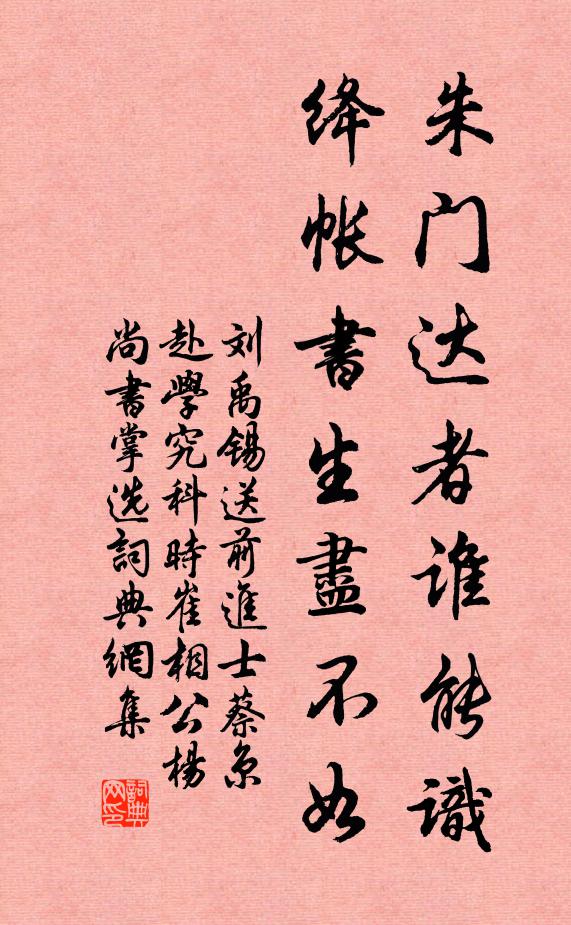 朱门达者谁能識
绛帐書生盡不如
刘禹锡送前進士蔡京
赴學究科時崔相公楊
尚書掌选詞典網集
詞典网印